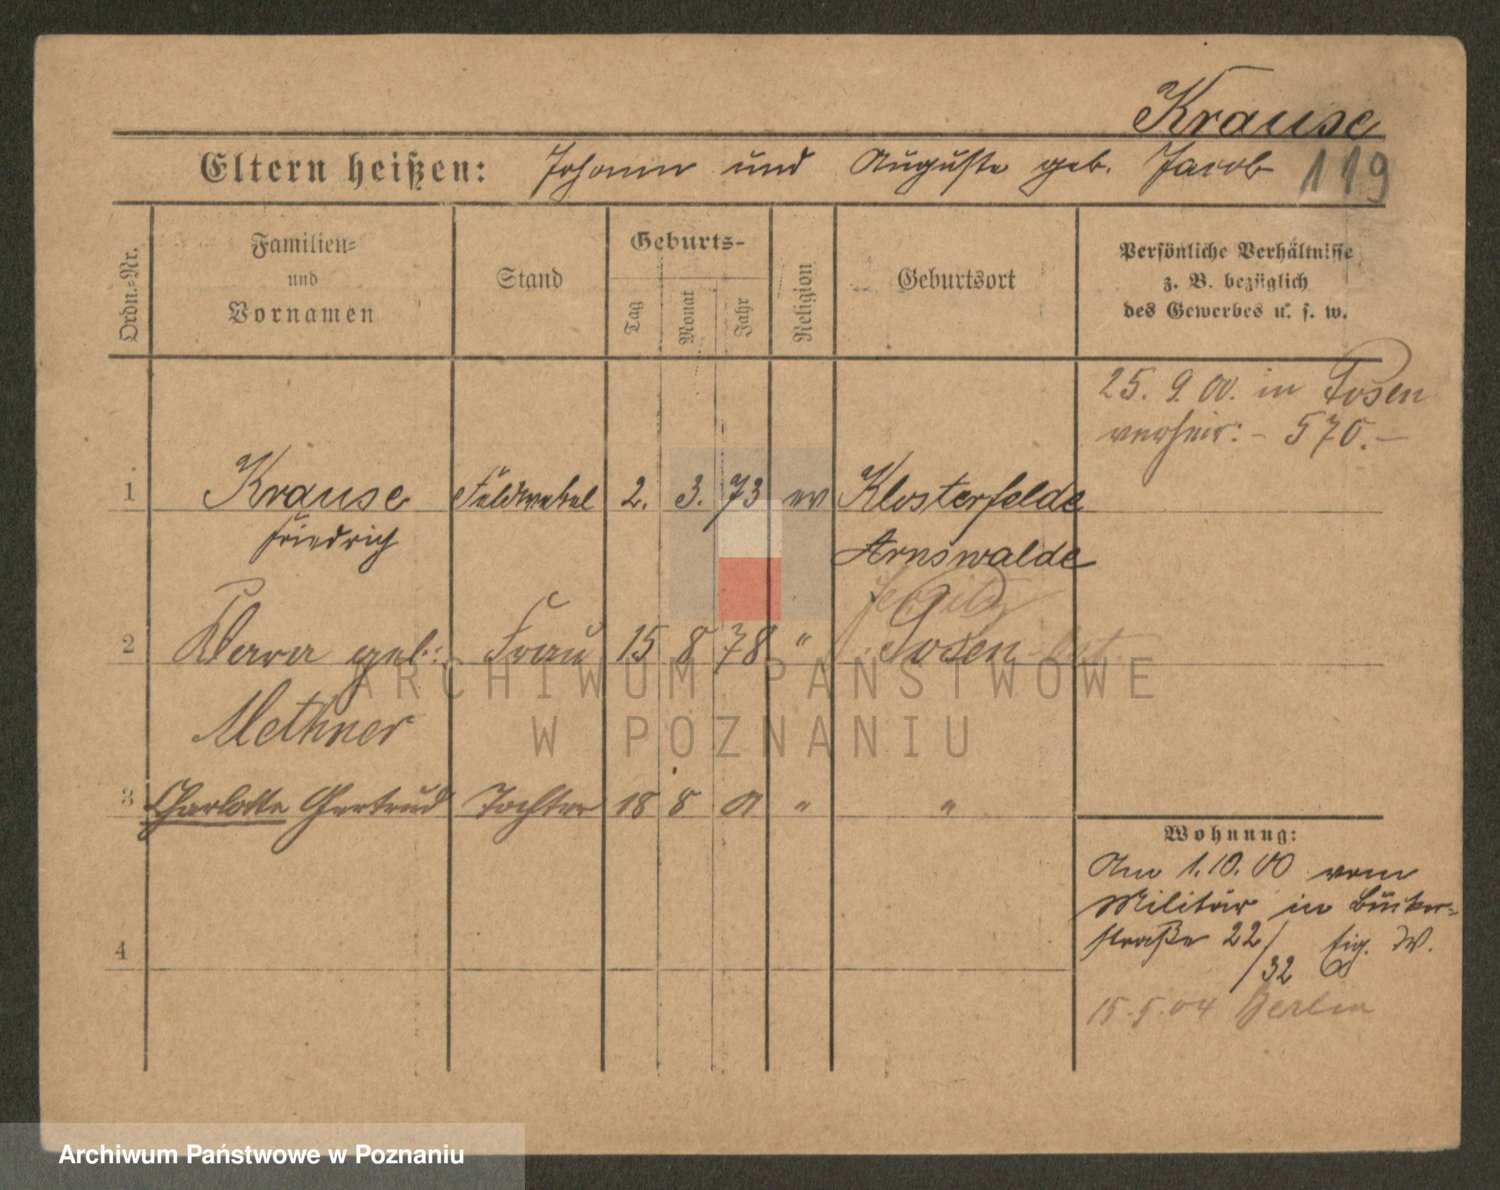 Krause
Eltern heißen: Johann und Auguste geb. Jacob
119
Ordn.-Nr.
Familien- und Vornamen
Stand
Geburts-
Tag
Monat
Jahr
Religion
Geburtsort
Persönliche Verhältnisse
z. B. bezüglich
des Gewerbes u. s. w.
25. 9. 00. in Posen
verheir: - 570.-
1 Krause Feldwebel 2. 3. 73 ev Klosterfelde
Friedrich Arnswalde
Jersitz
2 Clara geb: Frau 15 8 78 " Posen
Methner
3 Charlotte Gertrud Tochter 18 8 01 " "
Wohnung:
Am 1.10.00 vom
Militär in Bäcker-
straße 22/32 Eig. W.
4
15.5.04 Berlin
ARCHIWUM PAŃSTWOWE
W POZNANIU
Archiwum Państwowe w Poznaniu